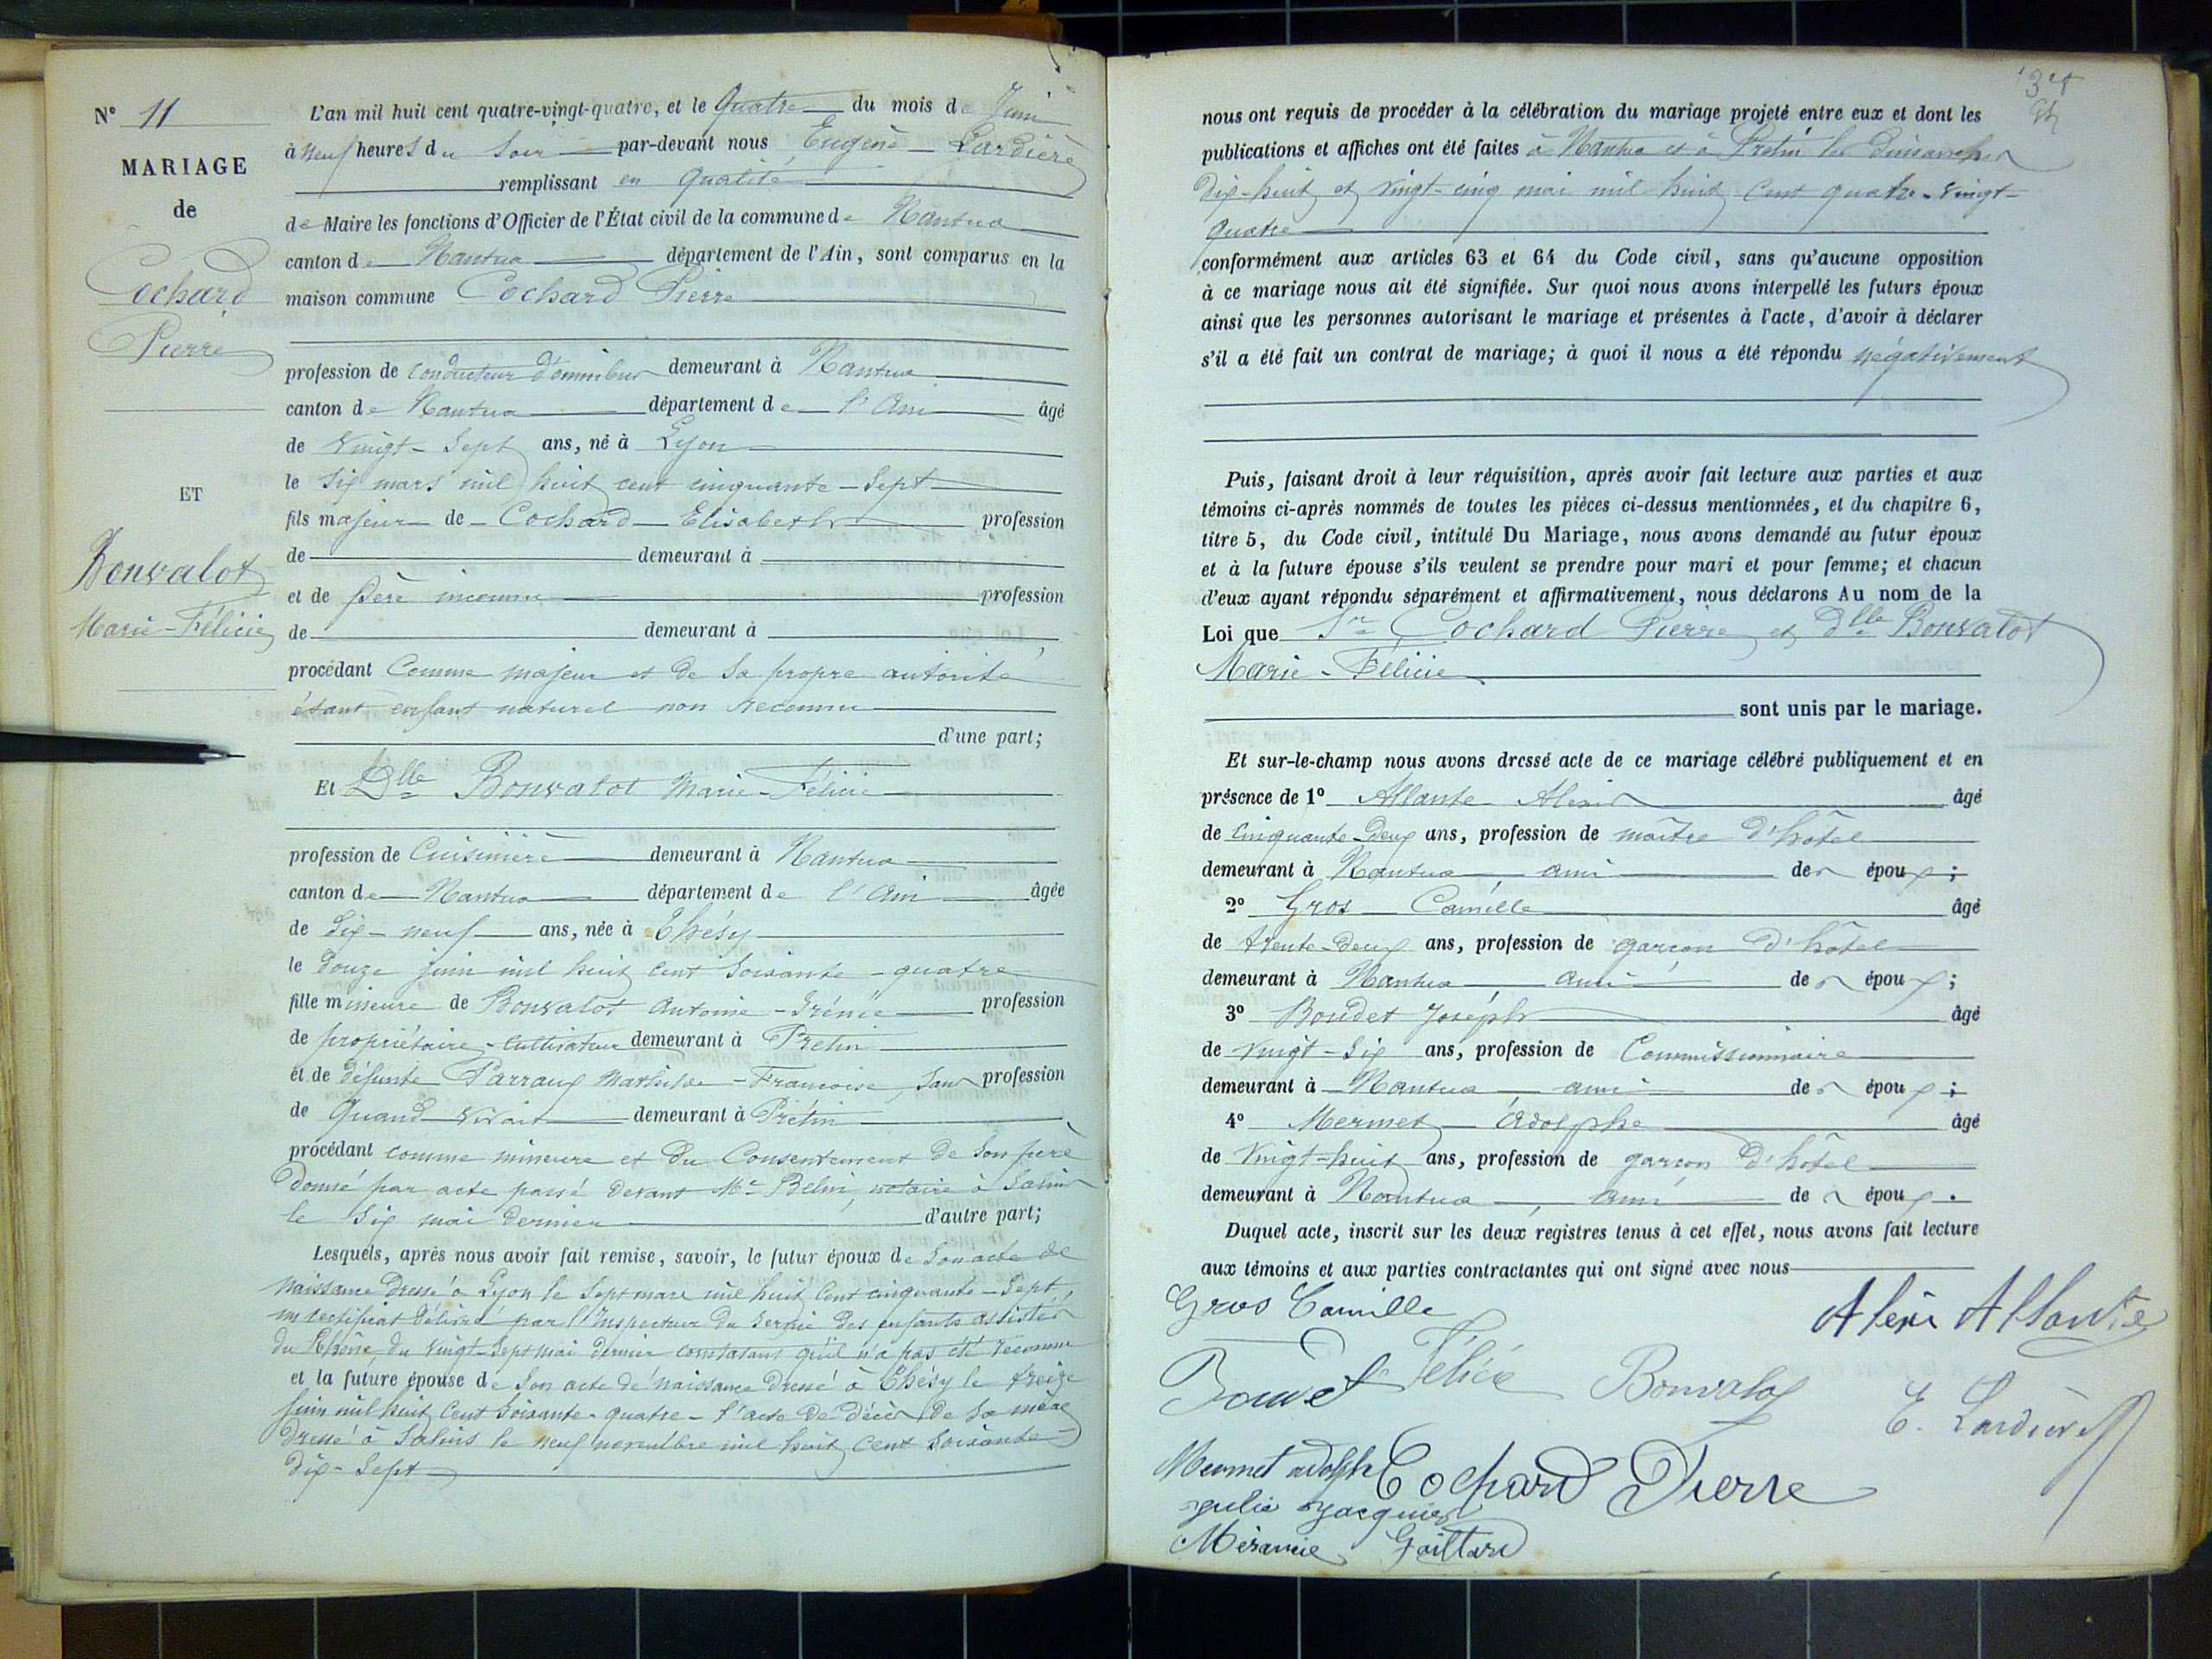 N° 11
MARIAGE
de
Cochard
Pierre
ET
Bonvalot
Marie-Félicie
L'an mil huit cent quatre-vingt-quatre, et le Quatre du mois de Juin
à neuf heures du Soir par-devant nous Eugène Lardière
remplissant en qualité
de Maire les fonctions d'Officier de l'État civil de la commune de Nantua
canton de Nantua département de l'Ain, sont comparus en la
maison commune Cochard Pierre
profession de conducteur d'omnibus demeurant à Nantua
canton de Nantua département de l'Ain âgé
de Vingt-Sept ans, né à Lyon
le Six mars mil huit cent cinquante-Sept
fils majeur de Cochard Elisabeth profession
de demeurant à
et de père inconnu profession
de demeurant à
procédant Comme majeur et de sa propre autorité
étant enfant naturel non reconnu
d'une part;
Et Dlle Bonvalot Marie-Félicie
profession de Cuisinière demeurant à Nantua
canton de Nantua département de l'Ain âgée
de Dix-neuf ans, née à Thésy
le Douze juin mil huit cent Soixante-quatre
fille mineure de Bonvalot Antoine-Irénée profession
de propriétaire-cultivateur demeurant à Pretin
et de défunte Parraux Mathilde-Françoise, sans profession
de Quand vivait demeurant à Prétin
procédant comme mineure et du Consentement de Son père
donné par acte passé devant Me Belin, notaire à Salins
le Six mai dernier d'autre part;
Lesquels, après nous avoir fait remise, savoir, le futur époux de Son acte de
naissance dressé à Lyon le Sept mars mil huit Cent cinquante-Sept,
un certificat délivré par l'Inspecteur du Service des enfants assistés
du Rhône, du vingt-Sept mai dernier constatant qu'il n'a pas été reconnu
et la future épouse de Son acte de naissance dressé à Thésy le treize
Juin mil huit Cent Soixante-quatre - l'acte de décès de Sa mère
dressé à Salins le neuf novembre mil huit Cent Soixante-
dix-Sept
nous ont requis de procéder à la célébration du mariage projeté entre eux et dont les
publications et affiches ont été faites à Nantua et à Pretin les Dimanches
Dix-huit et Vingt-cinq mai mil huit Cent quatre-vingt-
Quatre
conformément aux articles 63 et 64 du Code civil, sans qu'aucune opposition
à ce mariage nous ait été signifiée. Sur quoi nous avons interpellé les futurs époux
ainsi que les personnes autorisant le mariage et présentes à l'acte, d'avoir à déclarer
s'il a été fait un contrat de mariage; à quoi il nous a été répondu négativement
Puis, faisant droit à leur réquisition, après avoir fait lecture aux parties et aux
témoins ci-après nommés de toutes les pièces ci-dessus mentionnées, et du chapitre 6,
titre 5, du Code civil, intitulé Du Mariage, nous avons demandé au futur époux
et à la future épouse s'ils veulent se prendre pour mari et pour femme; et chacun
d'eux ayant répondu séparément et affirmativement, nous déclarons Au nom de la
Loi que Sr Cochard Pierre et Dlle Bonvalot
Marie-Félicie
sont unis par le mariage.
Et sur-le-champ nous avons dressé acte de ce mariage célébré publiquement et en
présence de 1° Allante Alexis âgé
de Cinquante-Deux ans, profession de maître d'hôtel
demeurant à Nantua, ami des époux;
2° Gros Camille âgé
de trente-Deux ans, profession de garçon d'hôtel
demeurant à Nantua, ami des époux;
3° Boudet Joseph âgé
de Vingt-Six ans, profession de Commissionnaire
demeurant à Nantua, ami des époux;
4° Mermet Adolphe âgé
de Vingt-huit ans, profession de garçon d'hôtel
demeurant à Nantua, ami des époux.
Duquel acte, inscrit sur les deux registres tenus à cet effet, nous avons fait lecture
aux témoins et aux parties contractantes qui ont signé avec nous
Gros Camille
Alexi Allante
Félicie Bonvalot
E. Lardière
Mermet adolphe Cochard Pierre
julie Jacquier
Gaillard